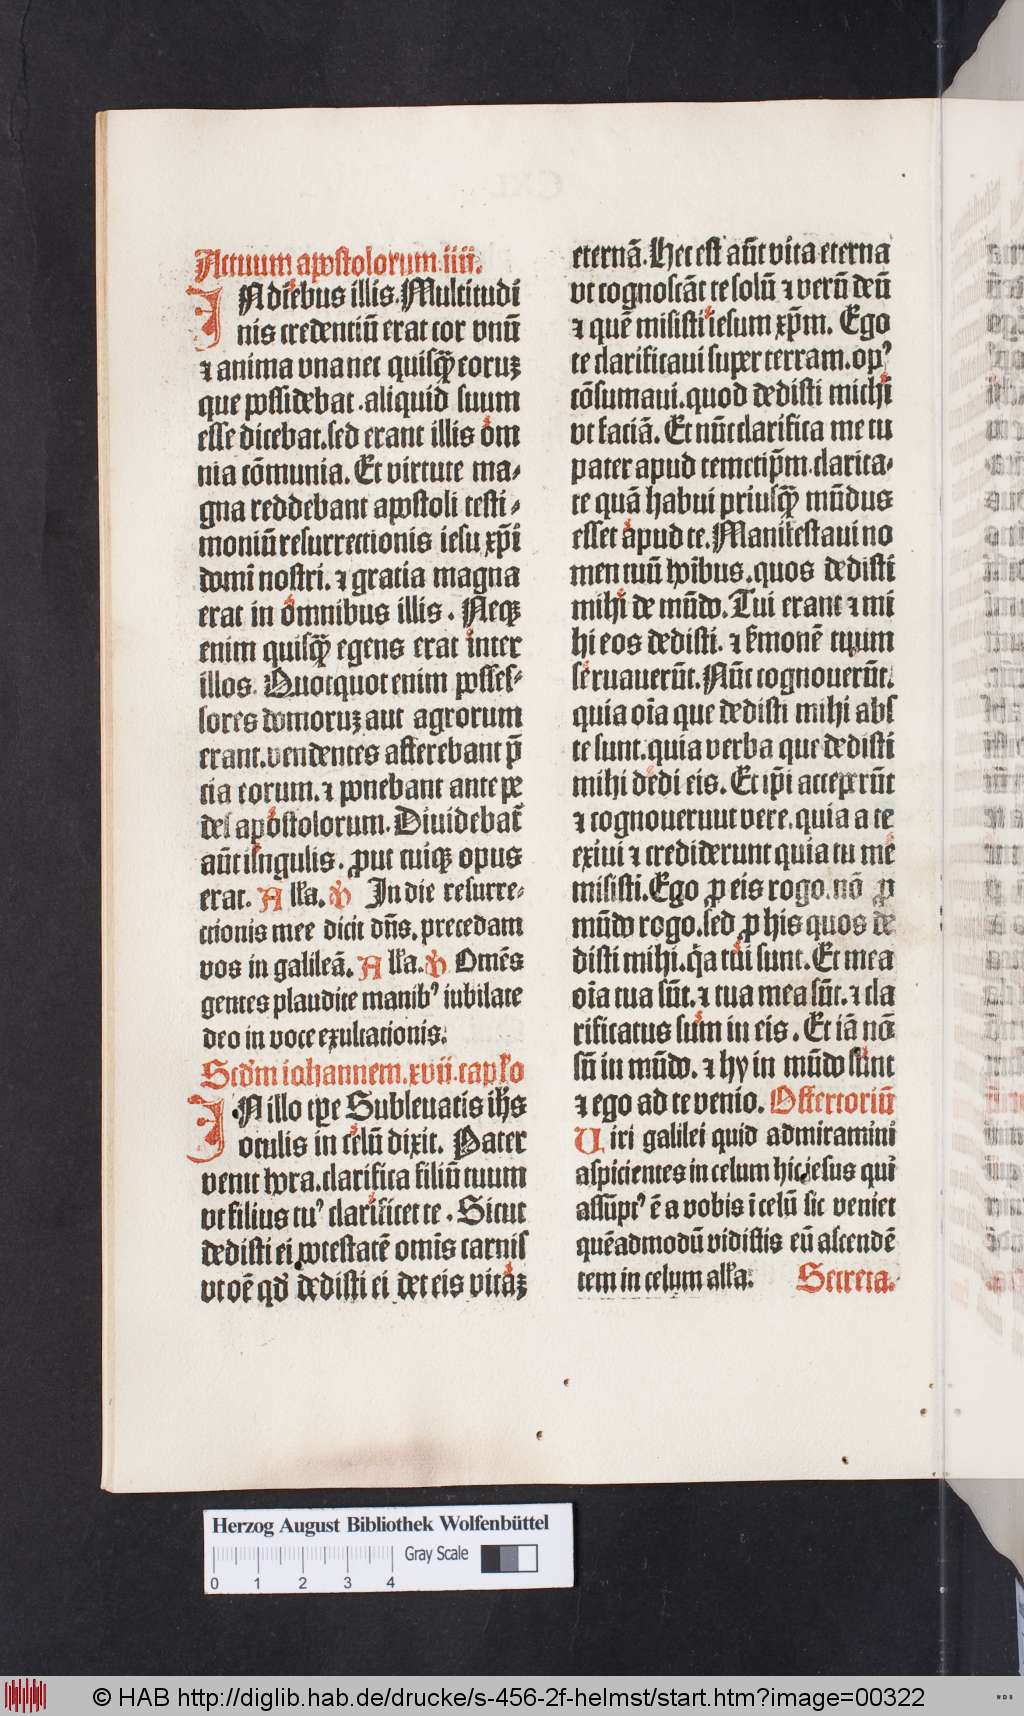 Actuum apostolorum .iiii.
IN diebus illis. Multitudi
nis credentiū erat cor vnū
⁊ anima vna nec quisq̄ȝ eoruȝ
que possidebat .aliquid suum
esse dicebat. sed erant illis om
nia cōmunia. Et virtute ma⸗
gna reddebant apostoli testi⸗
moniū resurrectionis iesu xp̄i
domī nostri. ⁊ gratia magna
erat in omnibus illis. Neqȝ
enim quisq̄ȝ egens erat inter
illos. Quotquot enim posses⸗
sores domoruȝ aut agrorum
erant. vendentes afferebant p̄
cia eorum. ⁊ ponebant ante pe
des apostolorum. Diuidebat̄
aūt singulis. ꝓut cuiqȝ opus
erat. Allˀa. ℣ In die resurre⸗
ctionis mee dicit dn̄s. precedam
vos in galileā. Allˀa. ℣ Omēs
gentes plaudite manibꝰ iubilate
deo in voce exultationis.
Scd̄m iohannem. xvii. capłˀo
IN illo tp̄e Subleuatis ih̄s
oculis in celū dixit. Pater
venit hora. clarifica filiū tuum
vt filius tuꝰ clarificet te. Sicut
dedisti ei potestatē omīs carnis
vt oē qd̄ dedisti ei det eis vitāȝ
eternā. Hec est aūt vita eterna
vt cognoscāt te solū ⁊ verū deū
⁊ quē misisti iesum xp̄m. Ego
te clarificaui super terram. opꝰ
cōsumaui. quod dedisti michi
vt faciā. Et nūc clarifica me tu
pater apud temetip̄m. clarita⸗
te quā habui priusq̄ȝ mūdus
esset apud te. Manifestaui no
men tuū hoībus. quos dedisti
mihi de mūdo. Tui erant ⁊ mi
hi eos dedisti. ⁊ ẜmonē tuum
seruauerūt. Nūc cognouerūt.
quia oīa que dedisti mihi abs
te sunt. quia verba que dedisti
mihi dedi eis. Et ip̄i acceperūt
⁊ cognouerunt vere. quia a te
exiui ⁊ crediderunt quia tu me
misisti. Ego ꝓ eis rogo. nō ꝓ
mūdo rogo. sed ꝓ his quos de
disti mihi. q̄a tui sunt. Et mea
oīa tua sūt. ⁊ tua mea sūt. ⁊ cla
rificatus sum in eis. Et iā nō
sū in mūdo. ⁊ hy in mūdo sunt
⁊ ego ad te venio. Offertoriū
Uiri galilei quid admiramini
aspicientes in celum hic jesus qui
assūptꝰ ē a vobis ī celū sic veniet
quēadmodū vidistis eū ascendē
tem in celum allˀa. Secreta.
Herzog August Bibliothek Wolfenbüttel
Gray Scale
0 1 2 3 4
© HAB http://diglib.hab.de/drucke/s-456-2f-helmst/start.htm?image=00322